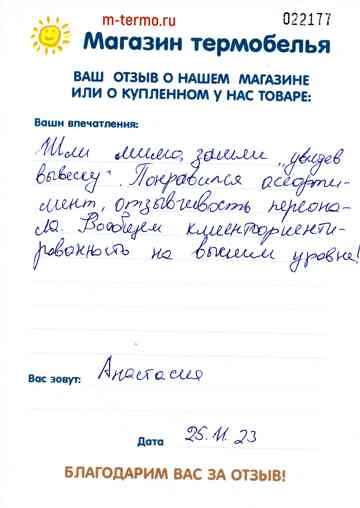 m-termo.ru
022177
Магазин термобелья
ВАШ ОТЗЫВ О НАШЕМ МАГАЗИНЕ
ИЛИ О КУПЛЕННОМ У НАС ТОВАРЕ:
Ваши впечатления:
Шли мимо, зашли „увидев
вывеску". Понравился ассорти-
мент, отзывчивость персона-
ла. Вообщем клиентоориенти-
рованность на высшем уровне!
Вас зовут: Анастасия
Дата 25.11.23
БЛАГОДАРИМ ВАС ЗА ОТЗЫВ!